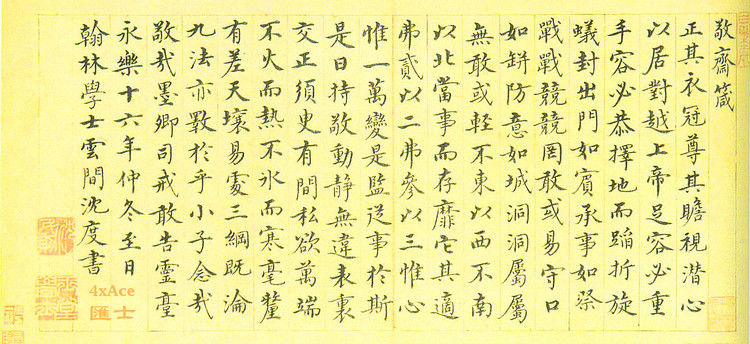 敬齋箴
正其衣冠尊其瞻視潛心
以居對越上帝足容必重
手容必恭擇地而蹈折旋
蟻封出門如賓承事如祭
戰戰兢兢罔敢或易守口
如缾防意如城洞洞屬屬
無敢或輕不東以西不南
以北當事而存靡它其適
弗貳以二弗參以三惟心
惟一萬變是監從事於斯
是曰持敬動靜無違表裏
交正須臾有間私欲萬端
不火而熱不氷而寒毫釐
有差天壤易處三綱既淪
九法亦斁於乎小子念哉
敬哉墨卿司戒敢告靈臺
永樂十六年仲冬至日
翰林學士雲間沈度書
4xAce
匯士